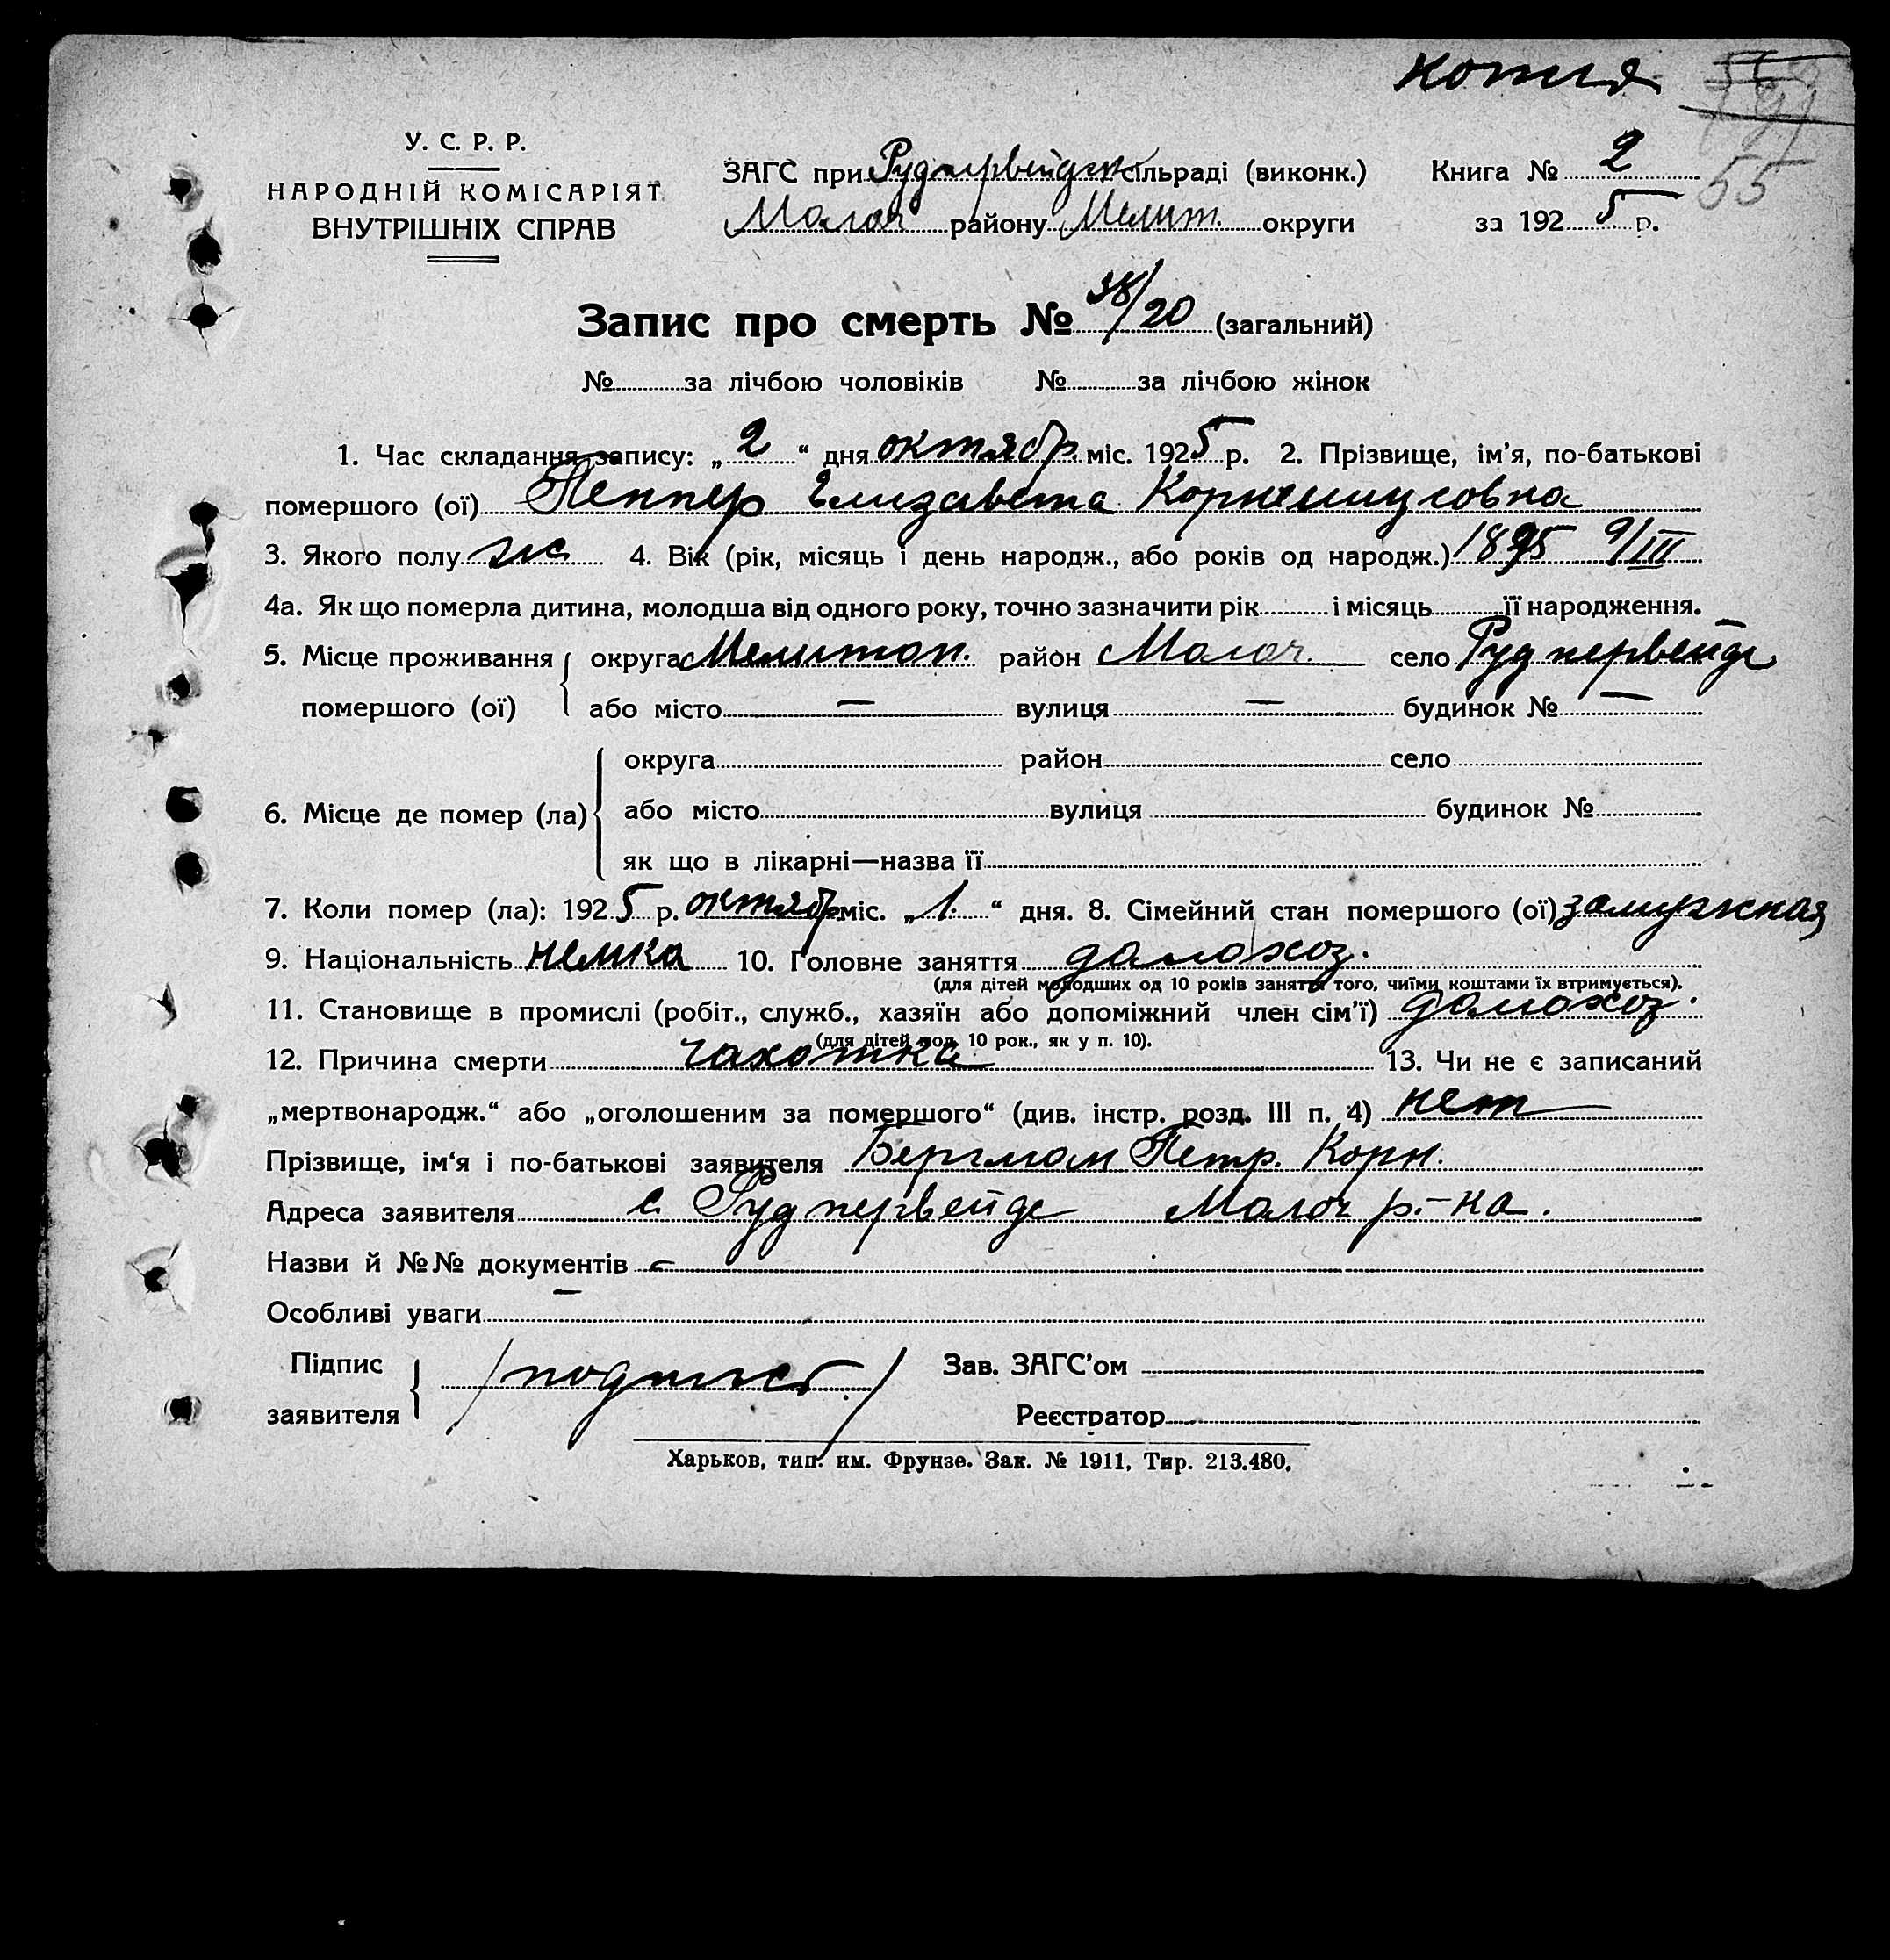 копия
55
У. С. Р. Р.
НАРОДНІЙ КОМІСАРІЯТ
ВНУТРІШНІХ СПРАВ
ЗАГС при Руднервейдск сільраді (виконк.) Книга № 2
Молоч району Мелит. округи за 1925 р.
Запис про смерть № 38/20 (загальний)
№ за лічбою чоловіків № за лічбою жінок
1. Час складання запису: „2“ дня октябр міс. 1925 р. 2. Прізвище, ім'я, по-батькові
помершого (ої) Геппер Елизавета Корнелиусовна
3. Якого полу ж 4. Вік (рік, місяць і день народж., або років од народж.) 1895 9/III
4а. Як що померла дитина, молодша від одного року, точно зазначити рік і місяць її народження.
5. Місце проживання округа Мелитоп. район Молоч. село Руднервейде
помершого (ої) або місто — вулиця — будинок № —
округа район село
6. Місце де помер (ла) або місто вулиця будинок №
як що в лікарні—назва її
7. Коли помер (ла): 1925 р. октябр міс. „1.“ дня. 8. Сімейний стан помершого (ої) замужная
9. Національність немка 10. Головне заняття домохоз.
(для дітей молодших од 10 років заняття того, чиїми коштами їх втримується).
11. Становище в промислі (робіт., служб., хазяїн або допоміжний член сім'ї) домохоз.
(для дітей мол. 10 рок., як у п. 10).
12. Причина смерти чахотка 13. Чи не є записаний
„мертвонародж.“ або „оголошеним за помершого“ (див. інстр. розд. III п. 4) нет
Прізвище, ім'я і по-батькові заявителя Бергман Петр. Корн.
Адреса заявителя с Руднервейде Молоч р-на.
Назви й №№ документів —
Особливі уваги —
Підпис /подпись/ Зав. ЗАГС'ом
заявителя Реєстратор
Харьков, тип. им. Фрунзе. Зак. № 1911, Тир. 213.480.